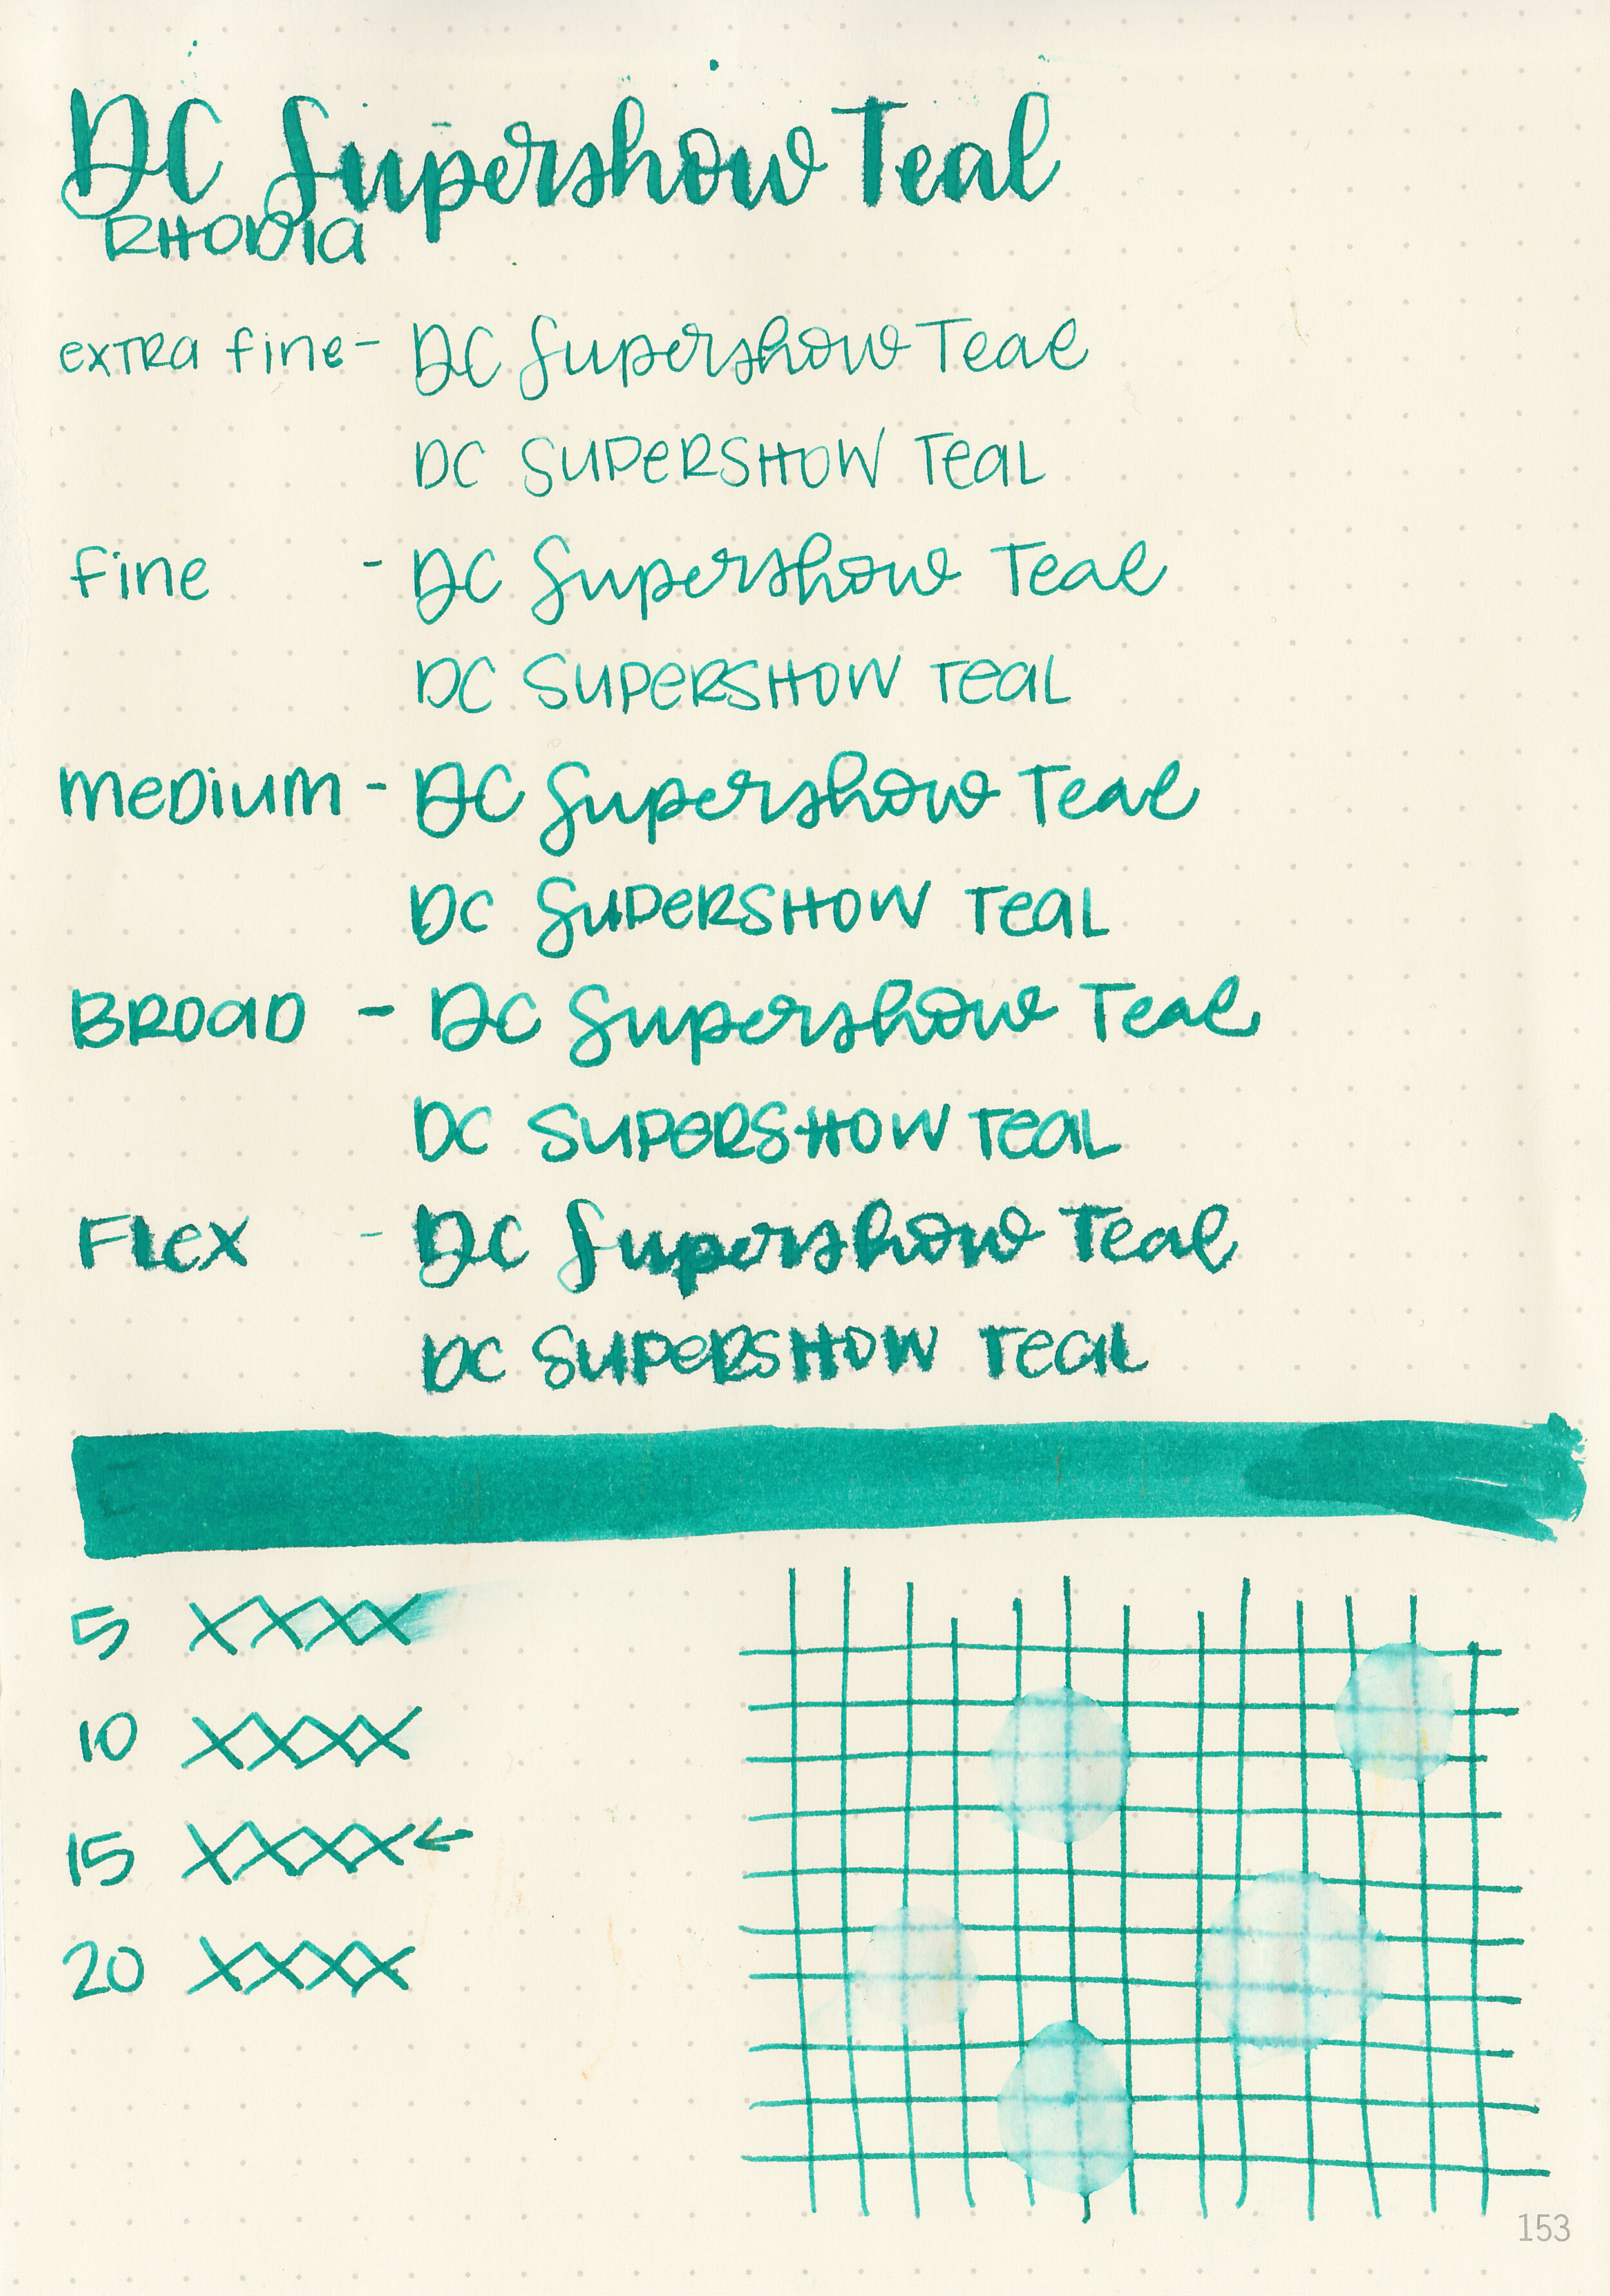 DC Supershow Teal
RHODIA
exTRa fine - DC Supershow Teal
DC SUPeRSHOW TeaL
fine - DC Supershow Teal
DC SUPeRSHOW TeaL
meDium - DC Supershow Teal
DC SUPeRSHOW TeaL
BROaD - DC Supershow Teal
DC SUPeRSHOW TeaL
FLex - DC Supershow Teal
DC SUPeRSHOW TeaL
5 XXXX
10 XXXX
15 XXXX ←
20 XXXX
153